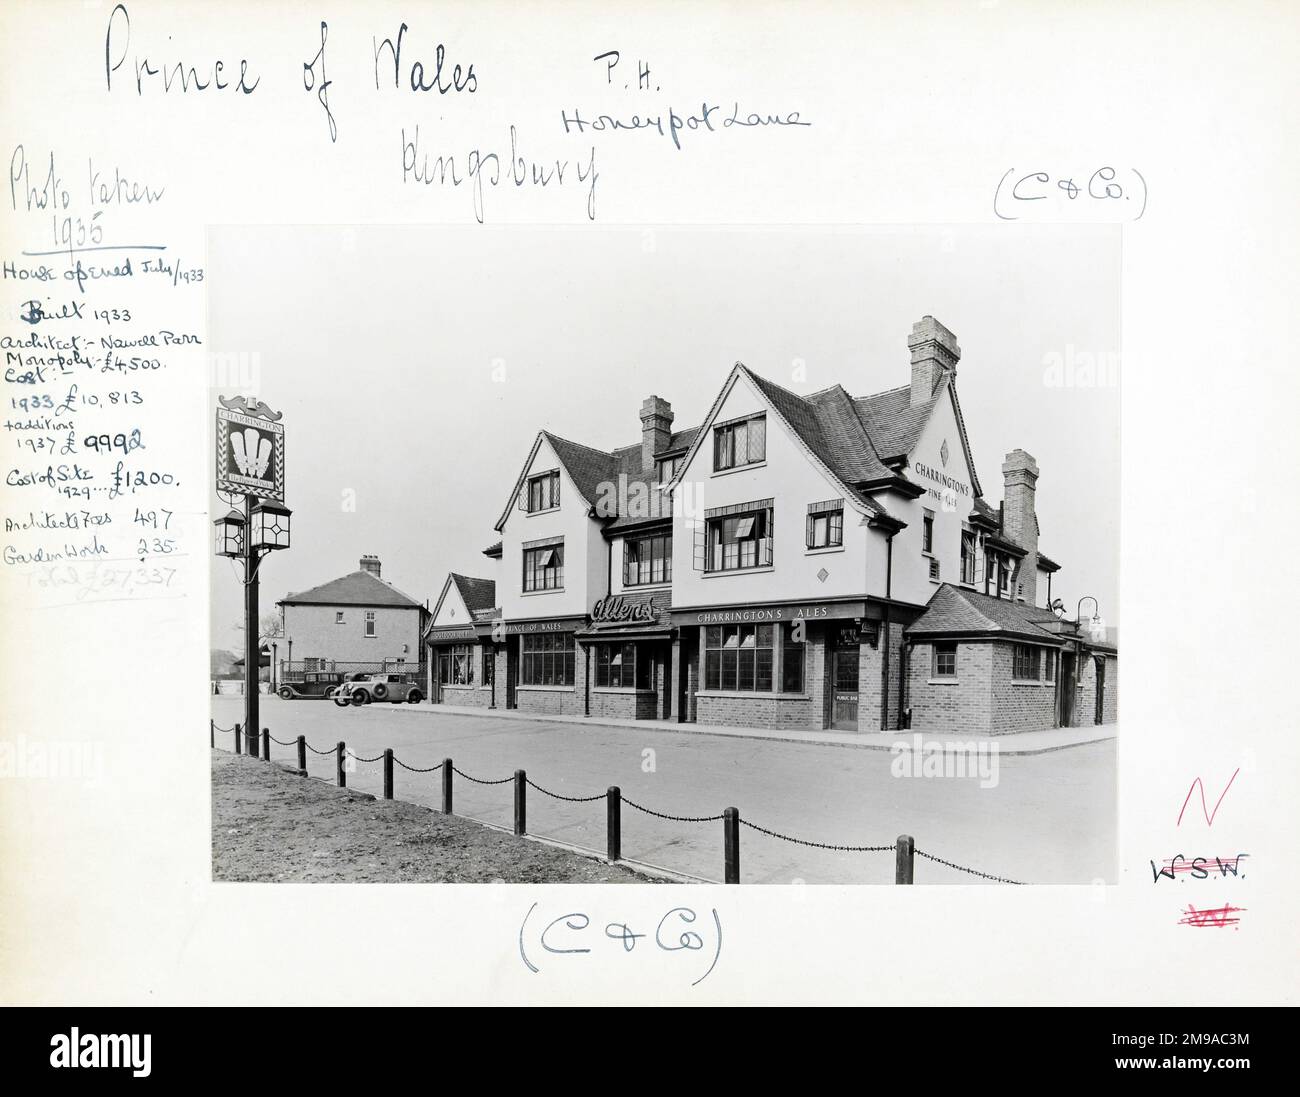 Prince of Wales P.H.
Honeypot Lane
Kingsbury
(C & Co.)
Photo taken
1935
House opened July/1933
Built 1933
Architect:- Nowell Parr
Monopoly:- £4,500.
Cost:-
1933 £10,813
+additions
1937 £ 9992
Cost of Site £1,200.
1929...
Architects Fees 497
Garden Work 235.
Total £27,337
CHARRINGTON
CHARRINGTON'S
FINE ALES
Allens
CHARRINGTON'S ALES
PRINCE OF WALES
OUTDOOR
PUBLIC BAR
N
W.S.W.
W.
(C & Co)
alamy
Image ID: 2M9AC3M
www.alamy.com